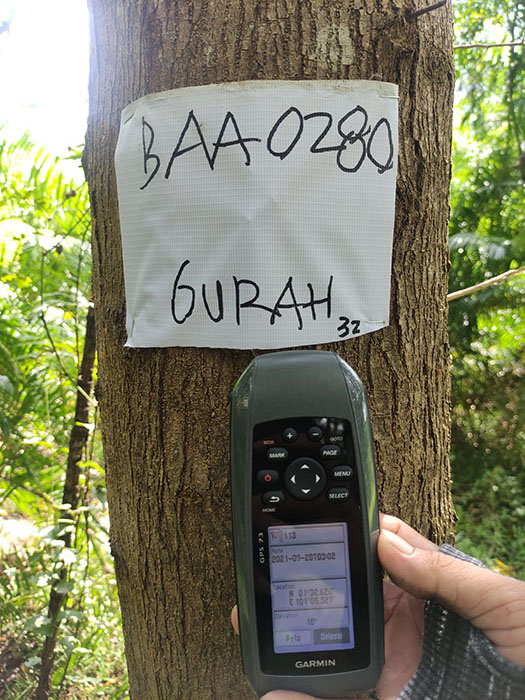 BAA0280
GURAH
32
MOB
GOTO
MARK
PAGE
MENU
SELECT
HOME
GPS 73
113
Note
2021-09-28T03:02
Location
N 01°32.626'
E 101°05.327'
Peta
Selesai
GARMIN